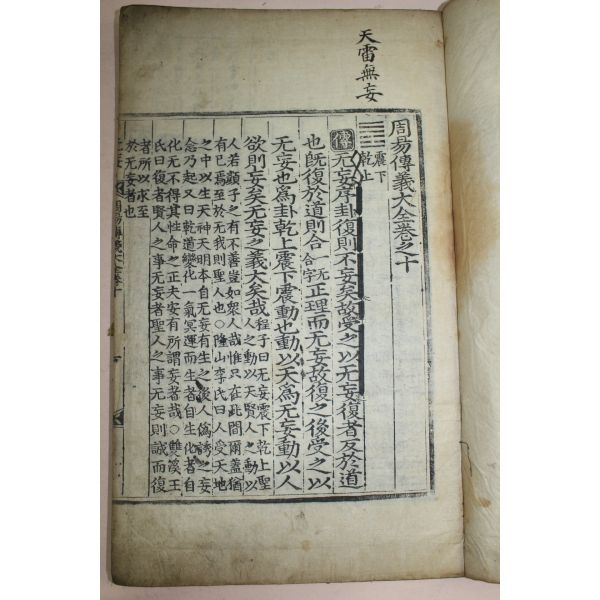 天雷無妄
周易傳義大全卷之十
震下
乾上
傳无妄序卦復則不妄矣故受之以无妄復者反於道
也旣復於道則合一无合字正理而无妄故復之後受之以
无妄也爲卦乾上震下震動也動以天爲无妄動以人
欲則妄矣无妄之義大矣哉程子曰无妄震下乾上聖
人之動以天賢人之動以
人若顔子之有不善豈如衆人哉惟只在此間爾蓋猶
有已焉至於无我則聖人也○隆山李氏曰人受天地
之中以生天神天明本自无妄有生之後人僞誘之妄
念乃起又曰乾道變化一氣冥運而生者自生化者自
化无不得其性命之正夫安有所謂妄者哉○雙溪王
氏曰復者賢人之事无妄者聖人之事无妄則誠而復
者所以求至
於无妄者也
周易傳義大全卷十